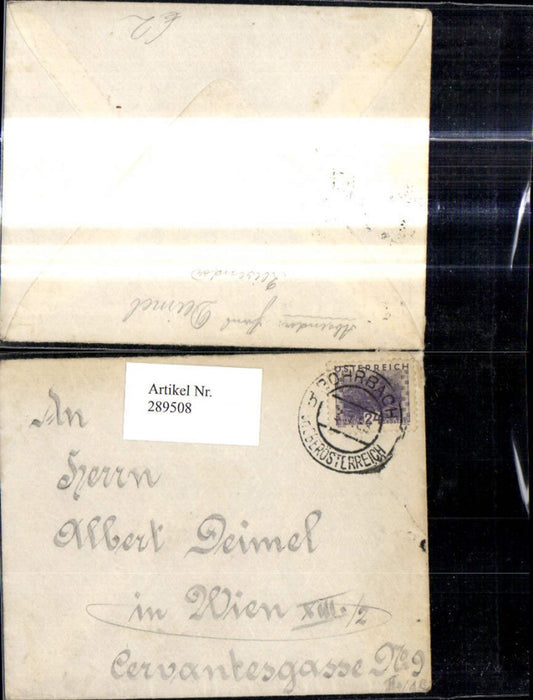 62
Absender: Deimel
Artikel Nr.
289508
ÖSTERREICH
24
ROHRBACH
OBERÖSTERREICH
An
Herrn
Albert Deimel
in Wien XIII/2
Cervantesgasse No 9